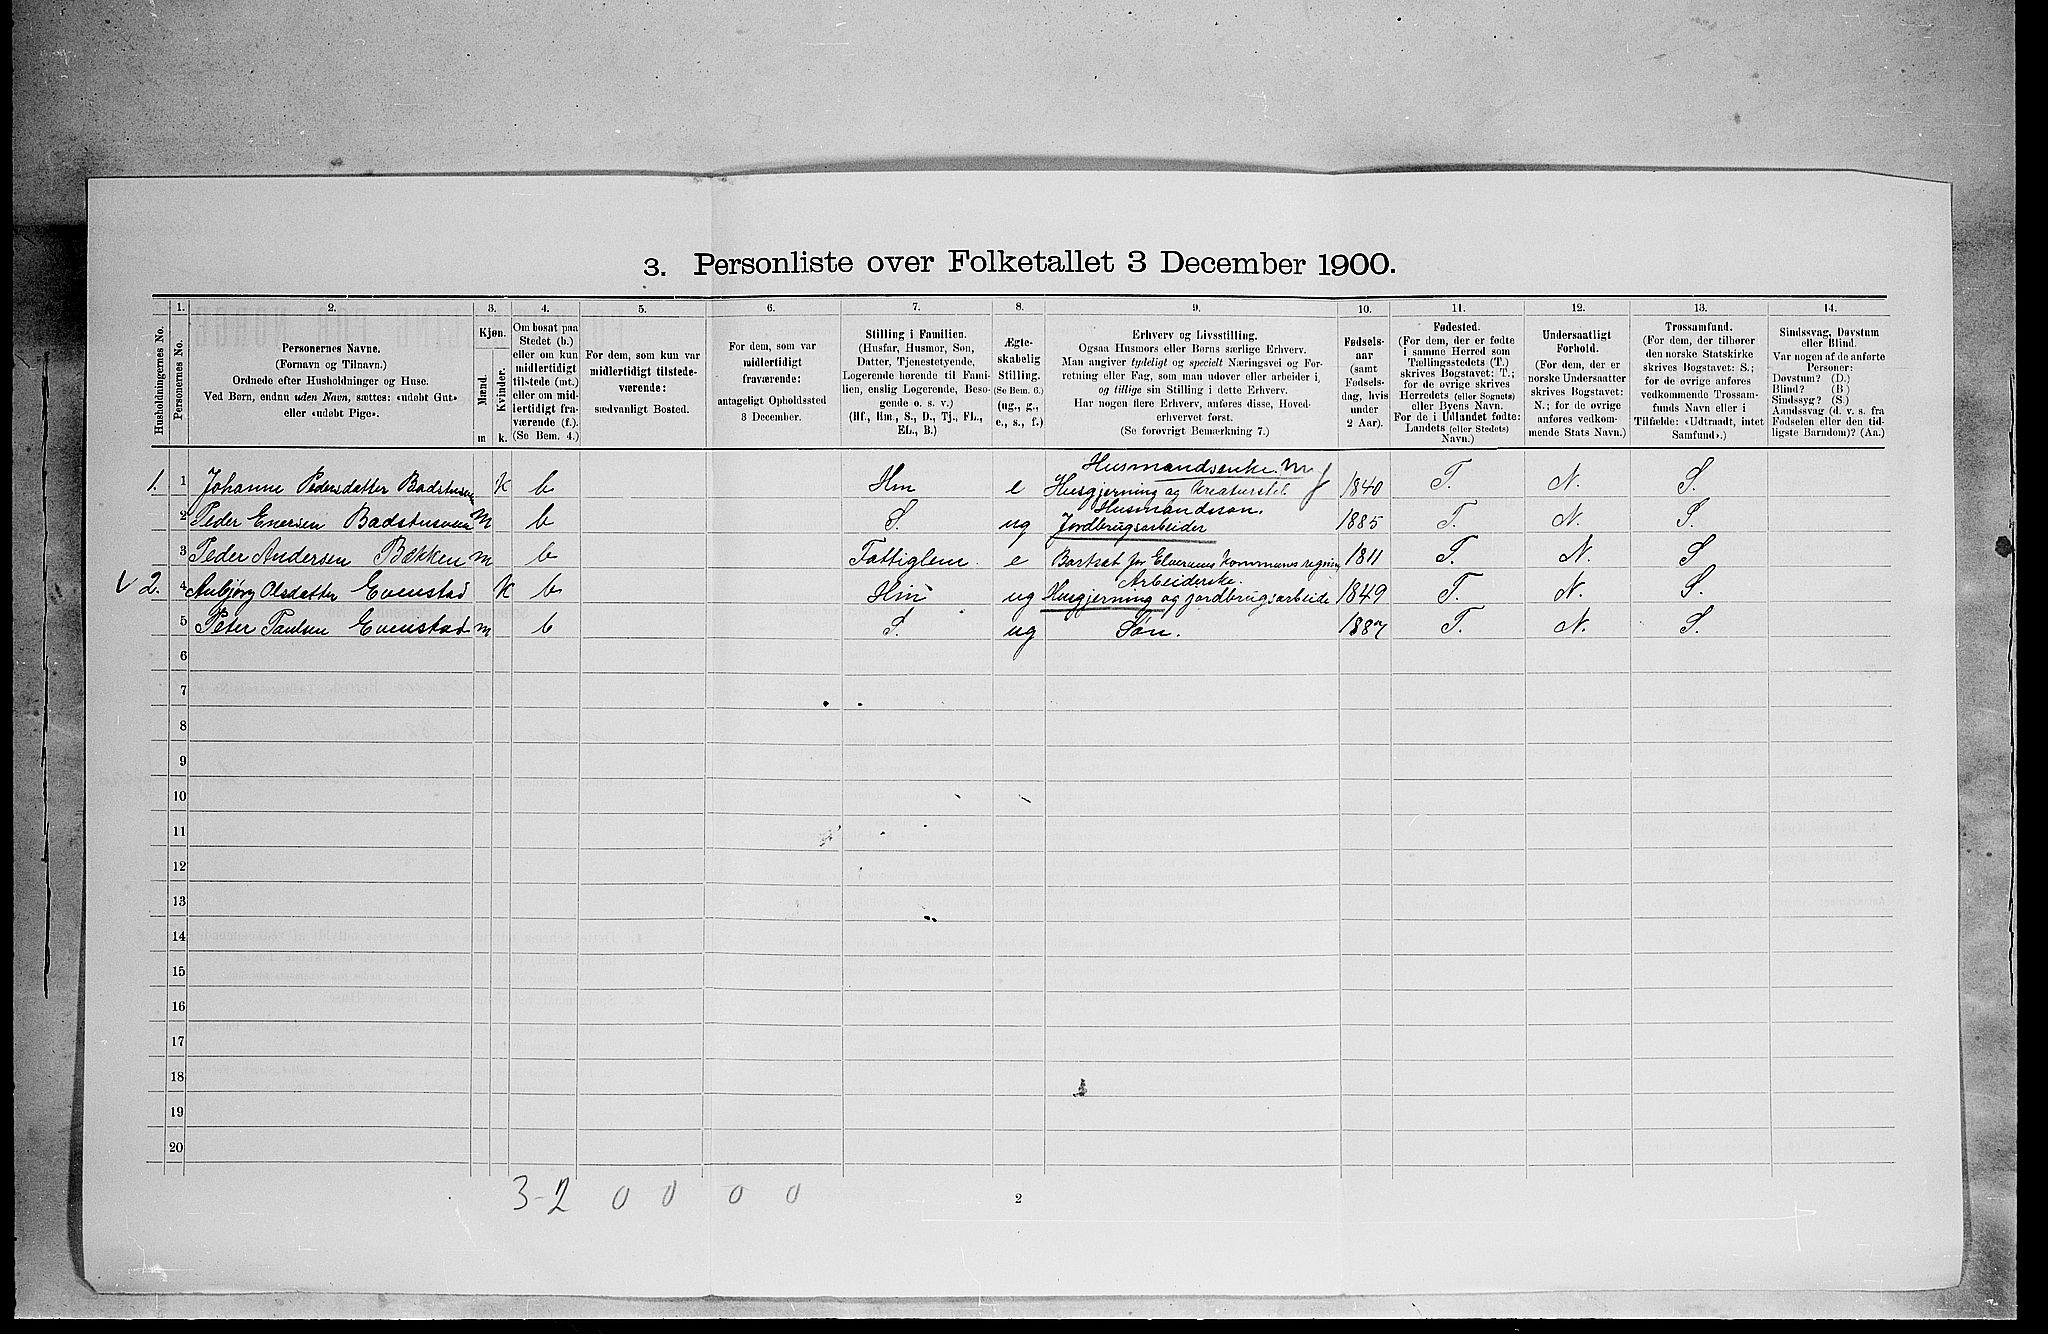 3. Personliste over Folketallet 3 December 1900.
1. 2. 3. 4. 5. 6. 7. 8. 9. 10. 11. 12. 13. 14.
Husholdningernes No.
Personernes No.
Personernes Navne.
(Fornavn og Tilnavn.)
Ordnede efter Husholdninger og Huse.
Ved Børn, endnu uden Navn, sættes: «udøbt Gut»
eller «udøbt Pige».
Kjøn.
Mænd.
Kvinder.
m k.
Om bosat paa
Stedet (b.)
eller om kun
midlertidigt
tilstede (mt.)
eller om mid-
lertidigt fra-
værende (f.).
(Se Bem. 4.)
For dem, som kun var
midlertidigt tilstede-
værende:
sædvanligt Bosted.
For dem, som var
midlertidigt
fraværende:
antageligt Opholdssted
3 December.
Stilling i Familien.
(Husfar, Husmor, Søn,
Datter, Tjenestetyende,
Logerende hørende til Fami-
lien, enslig Logerende, Besø-
gende o. s. v.)
(Hf., Hm., S., D., Tj., FL.,
EL., B.)
Ægte-
skabelig
Stilling.
(Se Bem. 6.)
(ug., g.,
e., s., f.)
Erhverv og Livsstilling.
Ogsaa Husmors eller Børns særlige Erhverv.
Man angiver tydeligt og specielt Næringsvei og For-
retning eller Fag, som man udøver eller arbeider i,
og tillige sin Stilling i dette Erhverv.
Har nogen flere Erhverv, anføres disse, Hoved-
erhvervet først.
(Se forøvrigt Bemærkning 7.)
Fødsels-
aar
(samt
Fødsels-
dag, hvis
under
2 Aar).
Fødested.
(For dem, der er fødte
i samme Herred som
Tællingsstedets (T.)
skrives Bogstavet: T.;
for de øvrige skrives
Herredets (eller Sognets)
eller Byens Navn.
For de i Udlandet fødte:
Landets (eller Stedets)
Navn.)
Undersaatligt
Forhold.
(For dem, der er
norske Undersaatter
skrives Bogstavet:
N.; for de øvrige
anføres vedkom-
mende Stats Navn.)
Trossamfund.
(For dem, der tilhører
den norske Statskirke
skrives Bogstavet: S.;
for de øvrige anføres
vedkommende Trossam-
funds Navn eller i
Tilfælde: «Udtraadt, intet
Samfund».)
Sindssvag, Døvstum
eller Blind.
Var nogen af de anførte
Personer:
Døvstum? (D.)
Blind? (B)
Sindssyg? (S.)
Aandssvag (d. v. s. fra
Fødselen eller den tid-
ligste Barndom)? (Aa.)
Husmandsenke. m
1. 1 Johanne Pedersdatter Badstuen K b Hm e Husgjerning og Kreaturstel 1840 T. N. S.
Husmandssøn.
2 Peder M b S. ug Jordbrugsarbeider 1885 T. N. S.
3 Peder Andersen Bækken M b Fattiglem. e Bortsat for Elverums Kommunes regning 1811 T. N. S
Arbeiderske.
2. 4 Anbjørg Olsdatter Evenstad K b Hm ug Husgjerning og jordbrugsarbeide 1849 T. N. S.
5 Peter Paulsen Evenstad m b S. ug Søn. 1887 T. N. S.
6
7
8
9
10
11
12
13
14
15
16
17
18
19
20
3-2 0 0 0 0
2